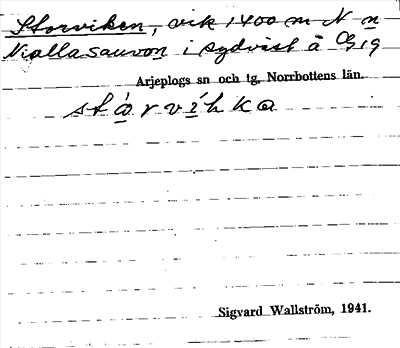 Storviken, vik 1400 m N n
Niallasauvon i sydväst å
Arjeplogs sn och tg. Norrbottens län.
Sigvard Wallström, 1941.